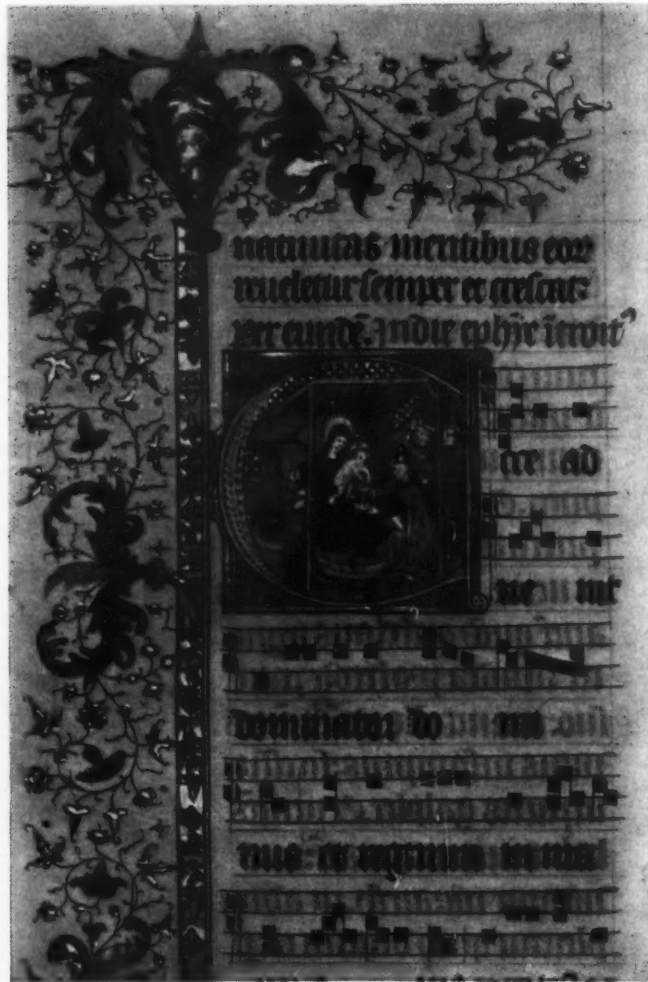 natiuitas mentibus eor
reueletur semper et crescat:
Per eundē. In die ephȳe ītroit⁹
cce ad
ue nit
dominator do mi
nus et regnum in manu